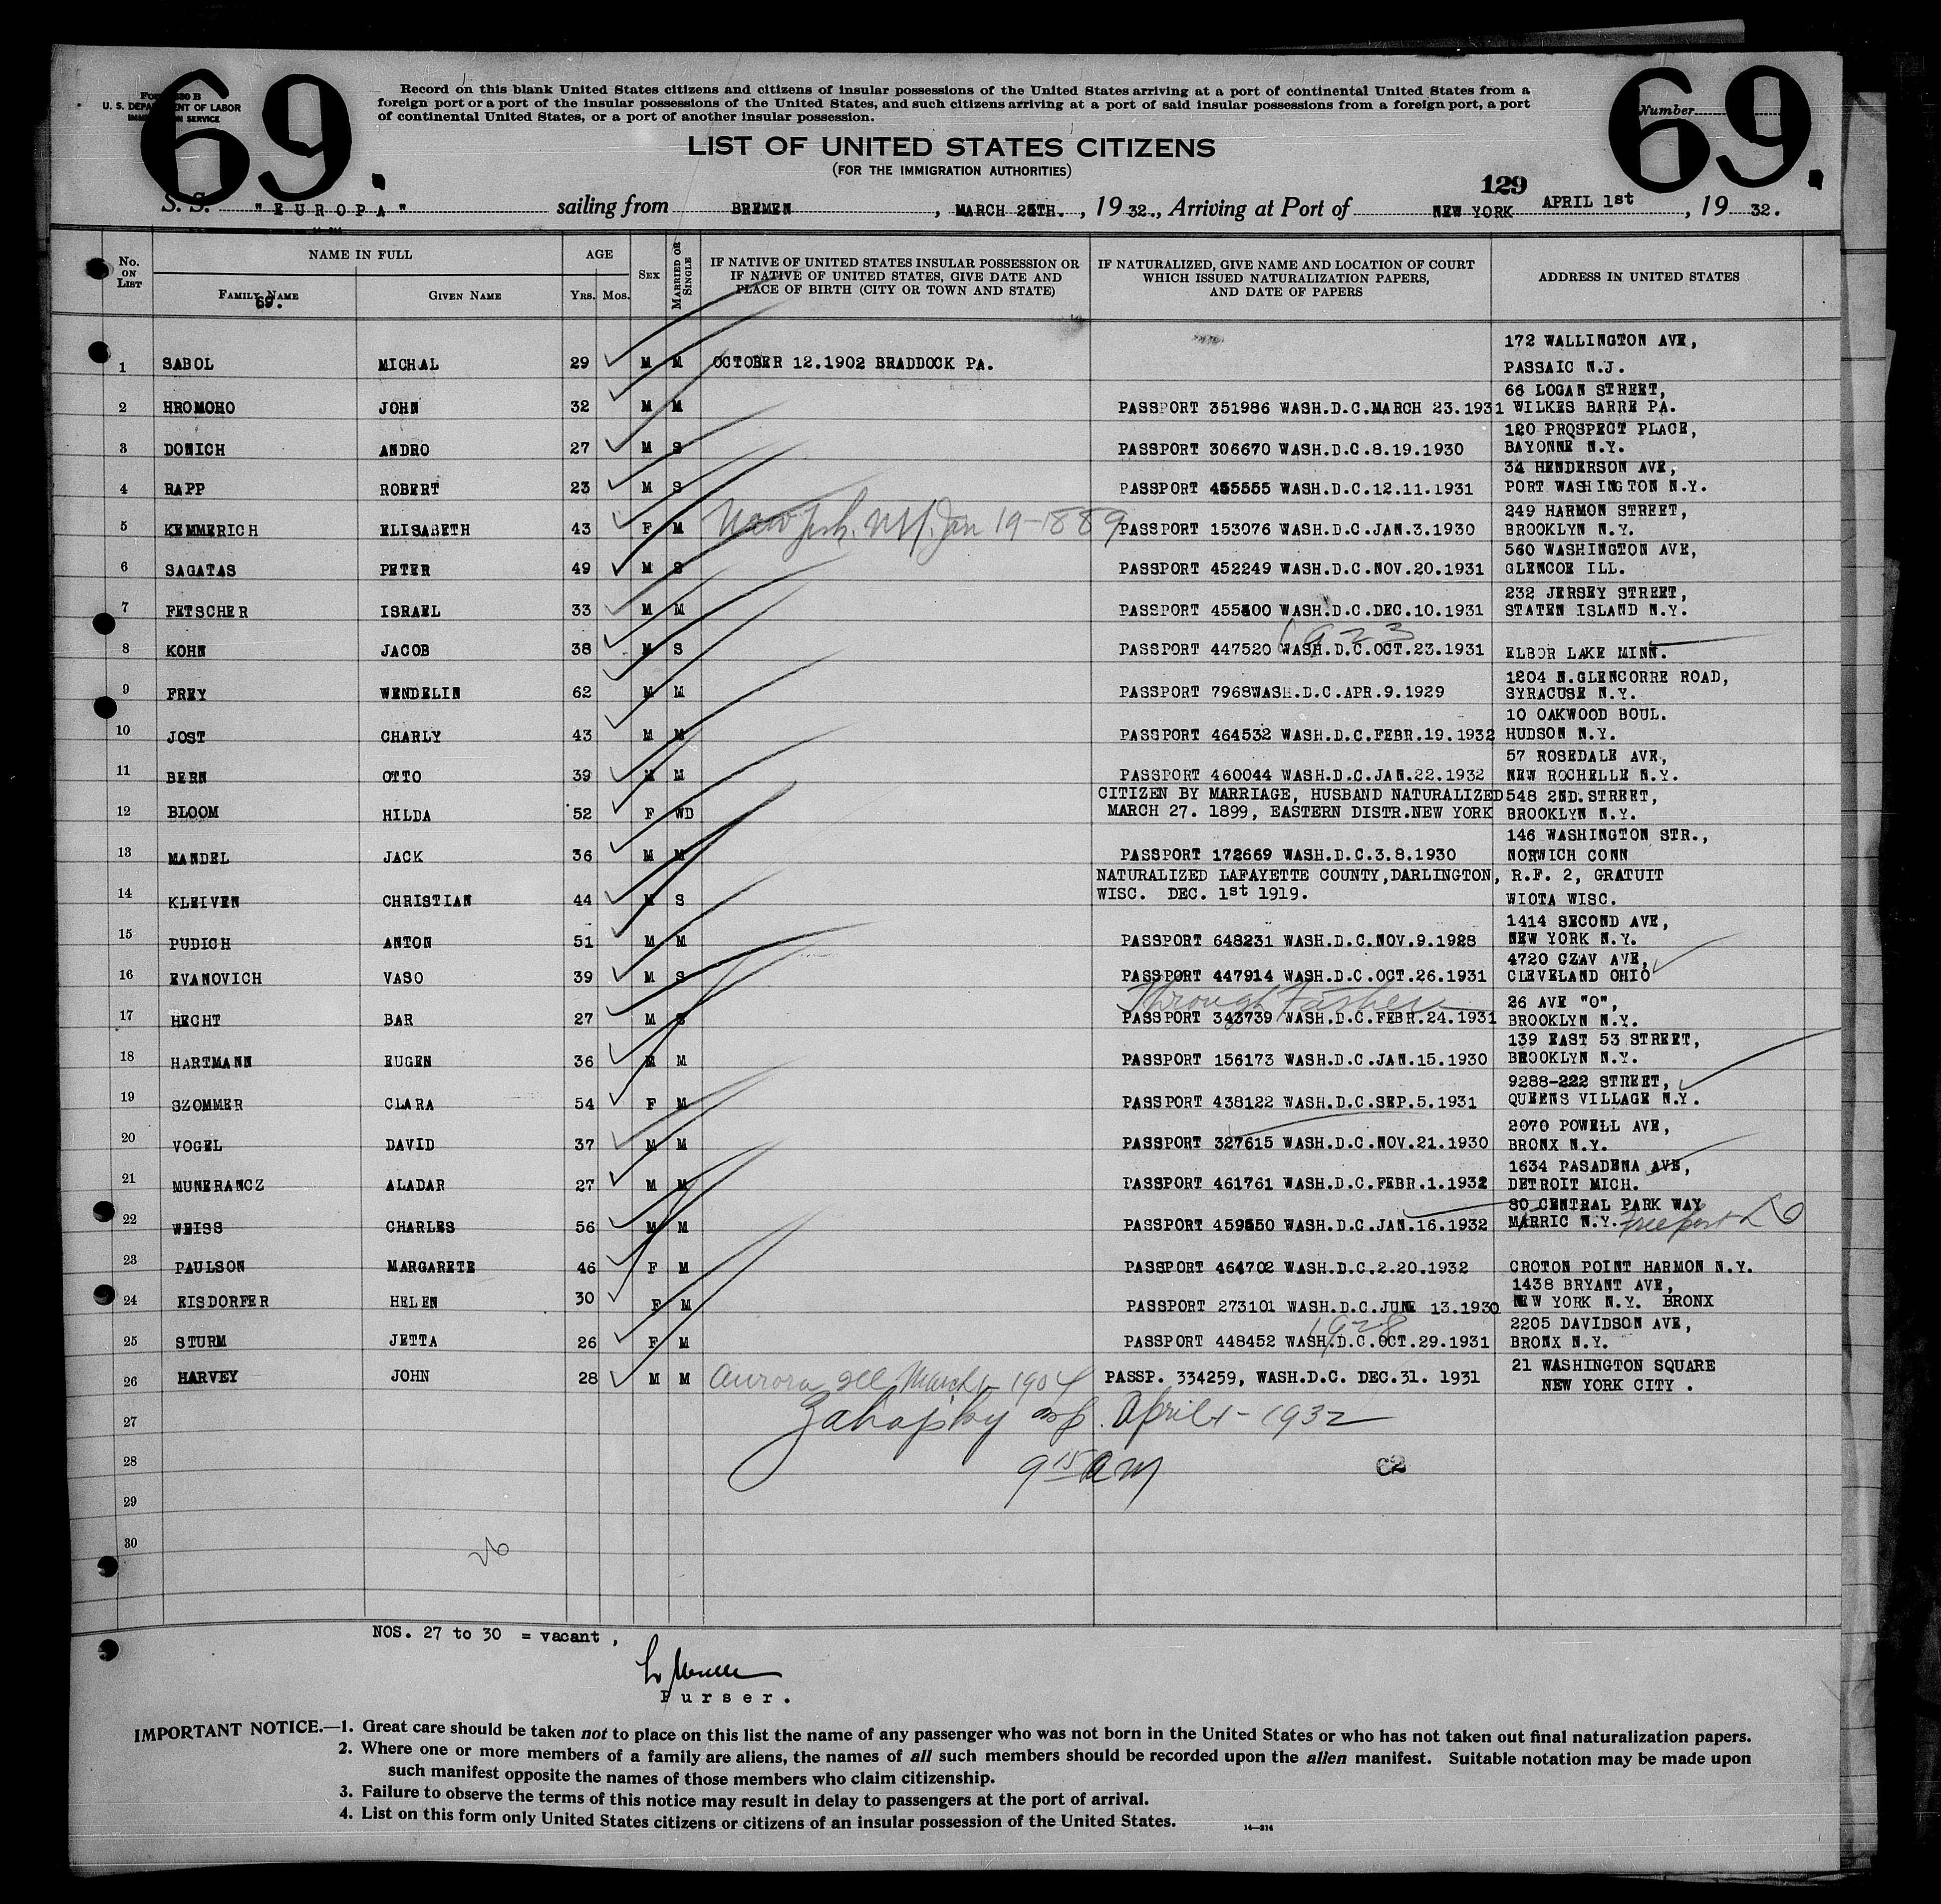 69.
69.
Form 630 B
U. S. DEPARTMENT OF LABOR
IMMIGRATION SERVICE
Record on this blank United States citizens and citizens of insular possessions of the United States arriving at a port of continental United States from a
foreign port or a port of the insular possessions of the United States, and such citizens arriving at a port of said insular possessions from a foreign port, a port
of continental United States, or a port of another insular possession.
Number
LIST OF UNITED STATES CITIZENS
(FOR THE IMMIGRATION AUTHORITIES)
129
S. S. "EUROPA" sailing from BREMEN, MARCH 26TH., 1932., Arriving at Port of NEW YORK APRIL 1st, 1932.
14—214
No. ON LIST NAME IN FULL AGE SEX MARRIED OR SINGLE IF NATIVE OF UNITED STATES INSULAR POSSESSION OR IF NATIVE OF UNITED STATES, GIVE DATE AND PLACE OF BIRTH (CITY OR TOWN AND STATE) IF NATURALIZED, GIVE NAME AND LOCATION OF COURT WHICH ISSUED NATURALIZATION PAPERS, AND DATE OF PAPERS ADDRESS IN UNITED STATES
FAMILY NAME GIVEN NAME YRS. MOS.
69.
1 SABOL MICHAL 29 M M OCTOBER 12.1902 BRADDOCK PA. 172 WALLINGTON AVE, PASSAIC N.J.
2 HROMOHO JOHN 32 M M PASSPORT 351986 WASH.D.C.MARCH 23.1931 66 LOGAN STREET, WILKES BARRE PA.
3 DONICH ANDRO 27 M S PASSPORT 306670 WASH.D.C.8.19.1930 120 PROSPECT PLACE, BAYONNE N.Y.
4 RAPP ROBERT 23 M S PASSPORT 455555 WASH.D.C.12.11.1931 34 HENDERSON AVE, PORT WASHINGTON N.Y.
5 KEMMERICH ELISABETH 43 F M New York. NY. Jan 19-1889 PASSPORT 153076 WASH.D.C.JAN.3.1930 249 HARMON STREET, BROOKLYN N.Y.
6 SAGATAS PETER 49 M S PASSPORT 452249 WASH.D.C.NOV.20.1931 560 WASHINGTON AVE, GLENCOE ILL.
7 FETSCHER ISRAEL 33 M M PASSPORT 455800 WASH.D.C.DEC.10.1931 232 JERSEY STREET, STATEN ISLAND N.Y.
1923
8 KOHN JACOB 38 M S PASSPORT 447520 WASH.D.C.OCT.23.1931 ELBOR LAKE MINN.
9 FREY WENDELIN 62 M M PASSPORT 7968WASH.D.C.APR.9.1929 1204 N.GLENCORRE ROAD, SYRACUSE N.Y.
10 JOST CHARLY 43 M M PASSPORT 464532 WASH.D.C.FEBR.19.1932 10 OAKWOOD BOUL. HUDSON N.Y.
11 BERN OTTO 39 M M PASSPORT 460044 WASH.D.C.JAN.22.1932 57 ROSEDALE AVE, NEW ROCHELLE N.Y.
12 BLOOM HILDA 52 F WD CITIZEN BY MARRIAGE, HUSBAND NATURALIZED MARCH 27. 1899, EASTERN DISTR.NEW YORK 548 2ND.STREET, BROOKLYN N.Y.
13 MANDEL JACK 36 M M PASSPORT 172669 WASH.D.C.3.8.1930 146 WASHINGTON STR., NORWICH CONN
14 KLEIVEN CHRISTIAN 44 M S NATURALIZED LAFAYETTE COUNTY,DARLINGTON, WISC. DEC. 1st 1919. R.F. 2, GRATUIT WIOTA WISC.
15 PUDICH ANTON 51 M M PASSPORT 648231 WASH.D.C.NOV.9.1928 1414 SECOND AVE, NEW YORK N.Y.
16 EVANOVICH VASO 39 M S PASSPORT 447914 WASH.D.C.OCT.26.1931 4720 CZAV AVE, CLEVELAND OHIO
Through Father
17 HECHT BAR 27 M S PASSPORT 343739 WASH.D.C.FEBR.24.1931 26 AVE "O", BROOKLYN N.Y.
18 HARTMANN EUGEN 36 M M PASSPORT 156173 WASH.D.C.JAN.15.1930 139 EAST 53 STREET, BROOKLYN N.Y.
19 SZOMMER CLARA 54 F M PASSPORT 438122 WASH.D.C.SEP.5.1931 9288-222 STREET, QUEENS VILLAGE N.Y.
20 VOGEL DAVID 37 M M PASSPORT 327615 WASH.D.C.NOV.21.1930 2070 POWELL AVE, BRONX N.Y.
21 MUNERANCZ ALADAR 27 M M PASSPORT 461761 WASH.D.C.FEBR.1.1932 1634 PASADENA AVE, DETROIT MICH.
22 WEISS CHARLES 56 M M PASSPORT 459550 WASH.D.C.JAN.16.1932 80 CENTRAL PARK WAY MARRIC N.Y. Freeport
23 PAULSON MARGARETE 46 F M PASSPORT 464702 WASH.D.C.2.20.1932 CROTON POINT HARMON N.Y.
24 EISDORFER HELEN 30 F M PASSPORT 273101 WASH.D.C.JUNE 13.1930 1438 BRYANT AVE, NEW YORK N.Y. BRONX
1928
25 STURM JETTA 26 F M PASSPORT 448452 WASH.D.C.OCT.29.1931 2205 DAVIDSON AVE, BRONX N.Y.
26 HARVEY JOHN 28 M M Aurora Ill March 1904 PASSP. 334259, WASH.D.C. DEC.31. 1931 21 WASHINGTON SQUARE NEW YORK CITY .
27 April 1 - 1932
28 9 15 AM C2
29
30
26
NOS. 27 to 30 = vacant ,
Purser.
IMPORTANT NOTICE.—1. Great care should be taken not to place on this list the name of any passenger who was not born in the United States or who has not taken out final naturalization papers.
2. Where one or more members of a family are aliens, the names of all such members should be recorded upon the alien manifest. Suitable notation may be made upon
such manifest opposite the names of those members who claim citizenship.
3. Failure to observe the terms of this notice may result in delay to passengers at the port of arrival.
4. List on this form only United States citizens or citizens of an insular possession of the United States.
14—214